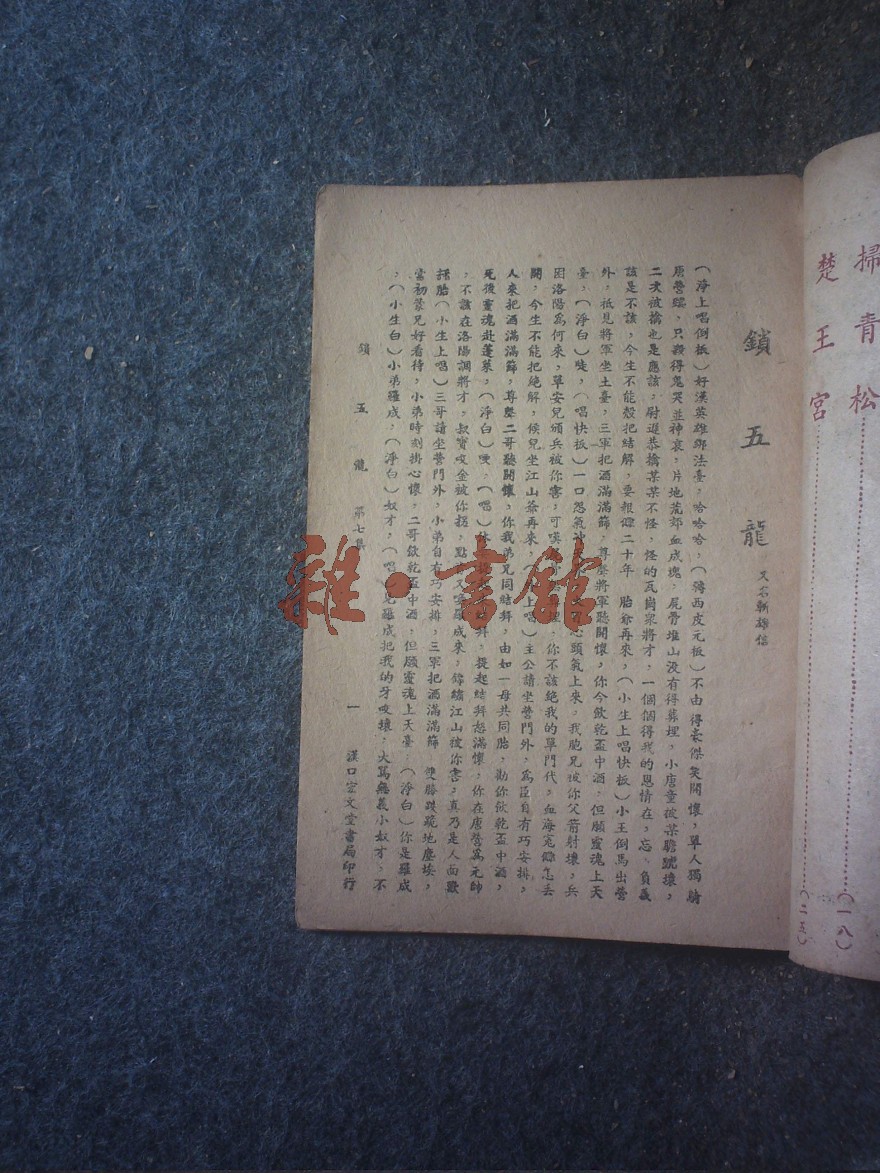 掃青松……(一八)
楚王宮……(二五)
鎖五龍
又名斬雄信
(淨上唱倒板)好漢英雄綁法臺,哈哈哈,(轉西皮元板)不由得豪傑笑開懷,單人獨騎
唐營踹,只殺得鬼哭並神哀,片地荒郊血成塊,屍骨堆山沒有得葬埋,小唐童被某膽唬壞,
二次被擒也是應該,尉遲恭擒某某不怪,怪的瓦崗眾將才,一個個得我的恩情在,忘、負義
該是不該,今生不能彀把結解,要報讎二十年 胎爺再來,(小生上唱快板)小王倒馬出營
外,祇見將軍坐土臺,三軍把酒滿滿篩,尊聲將軍聽開懷,你今飲乾盃中酒,但願靈魂上天
臺,(淨白)唗,(唱快板)一口怨氣冲 心頭氣上來,我胞兄被你父箭射壞,兵
困洛陽為何來,單安兒頒兵被你害,可嘆 你不該絕我的單門代,血海冤讎怎丟
開,今生不能把絕解,候兒坐江山爺再來,( 上唱)主公請坐營門外,為臣自有巧安排,
人來把酒滿滿篩,尊聲二哥聽開懷,你我弟兄同結拜,由如一母共同胎,勸你飲乾盃中酒,
死後靈魂赴蓬萊,(淨白)嗳,(唱)休 提起 結拜,提起結拜怒滿懷,你在唐營為元帥
,不該在洛陽調將才,叔寶咬金被你拐,點 又要羅成來,錦繡江山被你害,真乃是人面獸
禥胎(小生上唱)三哥請坐營門外,小弟自有巧安排,三軍把酒滿滿篩 雙膝跌跪地塵埃,
當初蒙兄好看待,小弟時刻掛心懷,二哥飲乾盃中酒,但願靈魂上天臺,(淨白)你是羅成
,(小生白)小弟羅成,(淨白)奴才,(唱)見羅成把我的牙咬壞,大罵無義小奴才,不
鎖五龍 第七集 一 漢口宏文堂書局印行
雜·書館